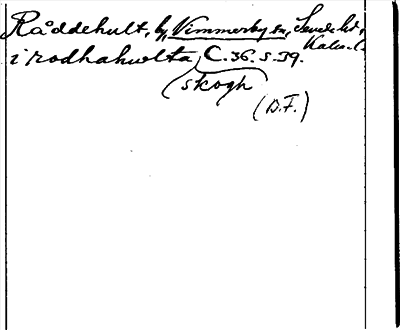 Råddehult, by, Vimmerby sn, Sevede hd,
Kalm. l.
i rodhahwlta, C. 36. s. 39.
skogh
(D.F.)